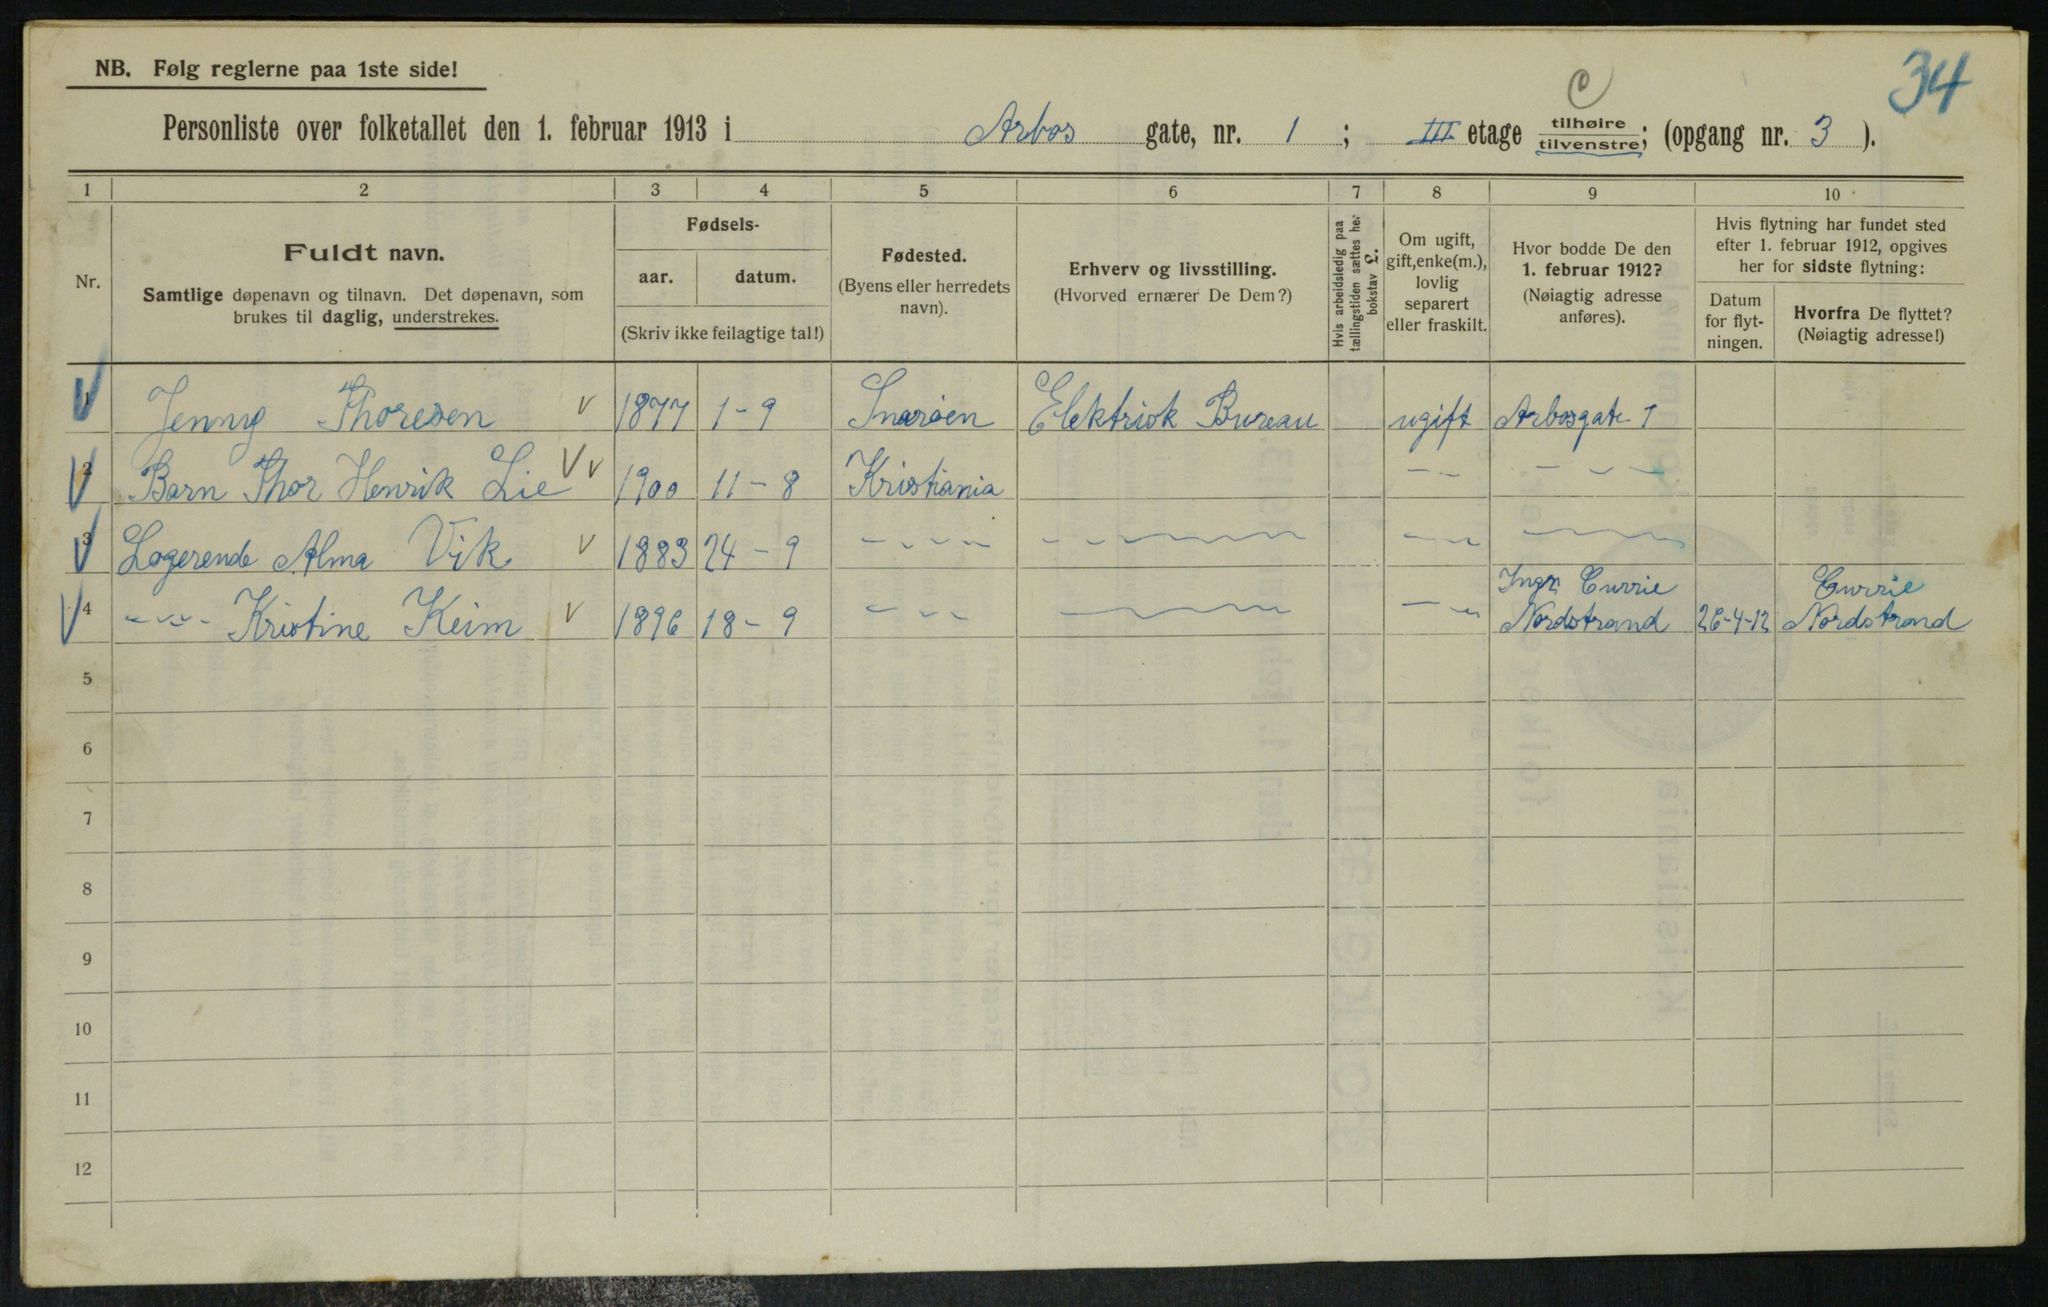 NB. Følg reglerne paa 1ste side!
34
Personliste over folketallet den 1. februar 1913 i Arbos gate, nr. 1 ; III etage tilhøire tilvenstre; (opgang nr. 3 ).
C
1 2 3 4 5 6 7 8 9 10
Nr.
Fuldt navn.
Samtlige døpenavn og tilnavn. Det døpenavn, som
brukes til daglig, understrekes.
Fødsels-
aar. datum.
(Skriv ikke feilagtige tal!)
Fødested.
(Byens eller herredets
navn).
Erhverv og livsstilling.
(Hvorved ernærer De Dem?)
Hvis arbeidsledig paa
tællingstiden sættes her
bokstav L.
Om ugift,
gift, enke(m.),
lovlig
separert
eller fraskilt.
Hvor bodde De den
1. februar 1912?
(Nøiagtig adresse
anføres).
Hvis flytning har fundet sted
efter 1. februar 1912, opgives
her for sidste flytning:
Datum
for flyt-
ningen.
Hvorfra De flyttet?
(Nøiagtig adresse!)
1 Jenny Thoresen 1877 1-9 Snarøen Elektrisk Bureau ugift Arbosgate 1
2 Barn Thor Henrik Lie 1900 11-8 Kristiania - - - - -
3 Logerende Alma Vik 1883 24-9 - - - - - - - - -
4 - - - Kristine Keim 1896 18-9 - - - - - - Ingr Currie Nordstrand 26-4-12 Currie Nordstrand
5
6
7
8
9
10
11
12